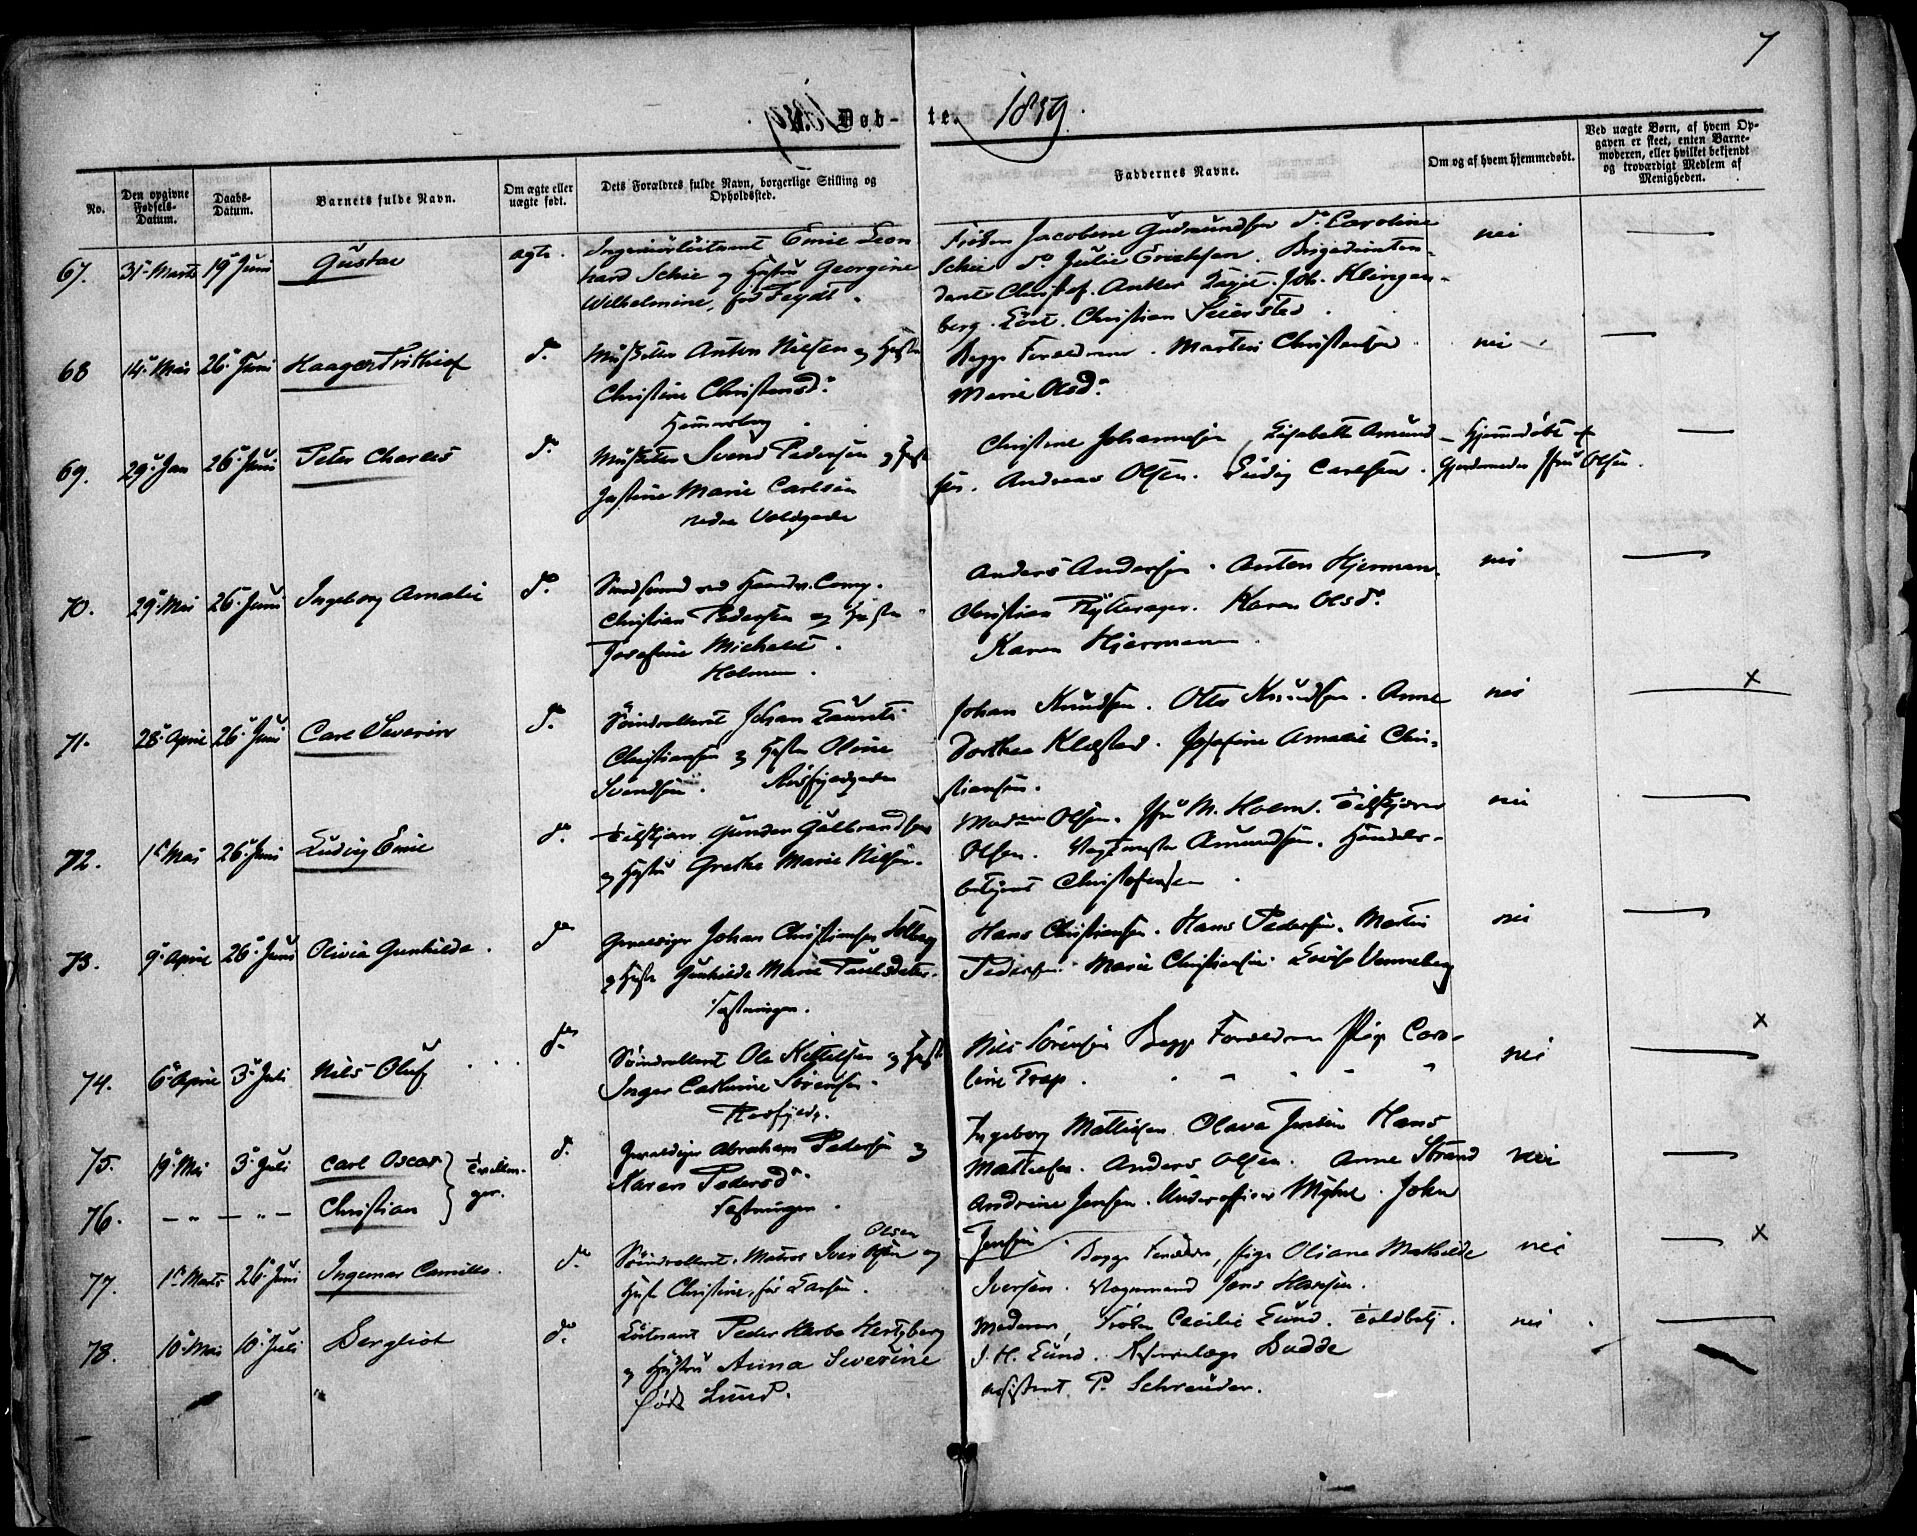 7
Døb-te. 1859.
No.
Den opgivne Fødsels-Datum.
Daabs-Datum.
Barnets fulde Navn.
Om ægte eller uægte født.
Dets Forældres fulde Navn, borgerlige Stilling og Opholdssted.
Faddernes Navne.
Om og af hvem hjemmedøbt.
Ved uægte Børn, af hvem Opgaven er skeet, enten Barnemoderen, eller hvilket bekjendt og troværdigt Medlem af Menigheden.
67. 31 Marts 19 Juni Gustav ægte.
Ingenieurlieutenant Emil Leon
hard Schie og Hustru Georgine
Wilhelmine, før Feydt.
Frøken Jacobine Gudmundsen do Caroline
Schie do Julie Erichsen. Brigadeinten-
dant Christof. Anker Joh. Klingen-
berg. Lieut. Christian Seiersted.
nei —
68 14 Mai 26 Juni Haagen Frithiof do
Musketer Anton Nielsen og Hustru
Christine Christensd.
Hammersborg
Begge Forældrene. Martin Christensen
Marie Olsd.
nei —
69. 29 Jan 26 Juni Peter Charles do
Musketer Svend Pedersen og Hustru
Marie Carlsen
nedre Voldgade
Christine Johannesen Elisabeth Amund-
sen. Andreas Olsen. Ludvig Carlsen.
Hjemmedøbt af
Gjordemoder Fru Olsen. —
70. 29 Mai 26 Juni Ingeborg Amalie do
ved Haandv. Comp.
Christian Pedersen og Hustru
Josefine Michelst.
Holmen.
Anders Andersen. Anton Hjerman.
Christian Karen Olsd.
Karen Hjermann.
nei —
71. 28 April 26 Juni Carl Severin do
Søindrulleret Johan Laurits
Christiansen og Hustru Oline
Svendsen.
Johan Knudsen. Otto Knudsen. Anne
Dorthea Klæstad. Josefine Amalie Chri-
stiansen.
nei — x
72. 1 Mai 26 Juni Ludvig Emil do
Gunder Gulbrandsen
og Hustru Grethe Marie Nielsen.
Madam Olsen. Fru M. Holm.
Olsen. Vagtmester Amundsen. Handels-
betjent Christofersen
nei —
73. 9 April 26 Juni Olivia Gunhilde. do
Gevaldiger Johan Christiansen Solberg
og Hustru Gunhilde Marie Paulsdatter.
Fæstningen.
Hans Christiansen. Hans Pedersen. Martin
Pedersen. Marie Christiansen. Lovise Venneberg
nei —
74. 6 April 3 Juli Nils Oluf do
Søindrulleret Ole Kittelsen og Hustru
Inger Cathrine Sørensen.
Nils Sørensen Begge Forældrene Pige Caro-
line Trap.
nei — x
75. 19 Mai 3 Juli Carl Oscar } Tvillin-
76. — " — " — Christian } ger. do
Gevaldiger Abraham Pedersen og
Karen Pedersd.
Fæstningen.
Ingeborg Mathisen. Olava Jensen Hans
Mathiesen. Anders Olsen. Anne Strand
Andrine Jensen. Underofficer Myhre. John
Jensen
nei —
77. 1 Marts 26 Juni Ingemar Camillo. do
Søindrulleret. Matros Iver Olsen og
Hustru Christine, før Larsen.
Begge Forældre, Pige Oliane Mathilde
Iversen. Vognmand Jens Hansen.
nei — x
78. 10 Mai 10 Juli Bergliot do
Lieutenant Peder Harbo Hertzberg
og Hustru Anna Severine
født Lund.
Moderen, Frøken Cecilie Lund. Toldbetj.
J. H. Lund. Reservelæge Budde
assistent P. Schreuder.
nei —